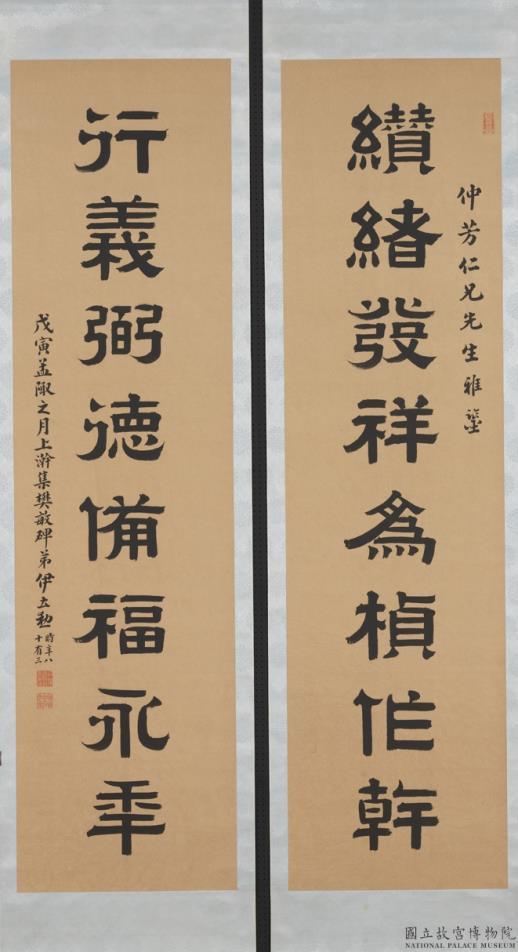 仲芳仁兄先生雅鑒
纘緒發祥為楨作幹
行義弼德備福永年
戊寅孟陬之月上澣集樊敏碑弟伊立勳時年八十有三
國立故宮博物院
NATIONAL PALACE MUSEUM